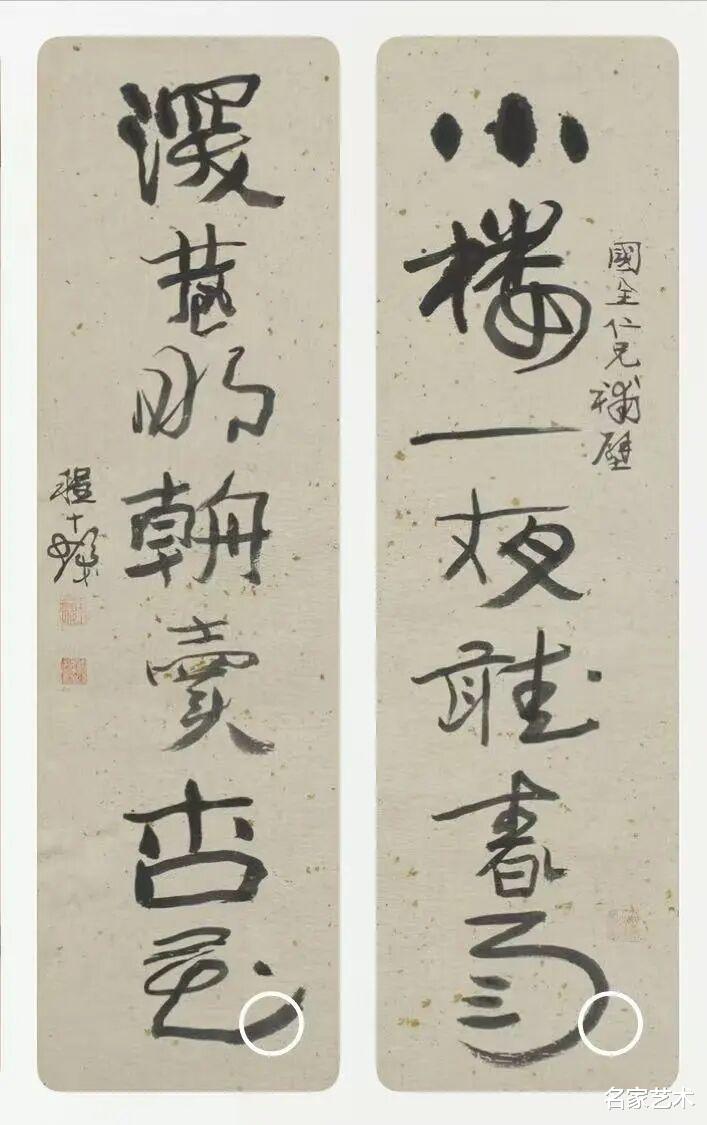 小樓一夜聽春雨
國全仁兄補壁
深巷明朝賣杏花
程十髮
名家艺术